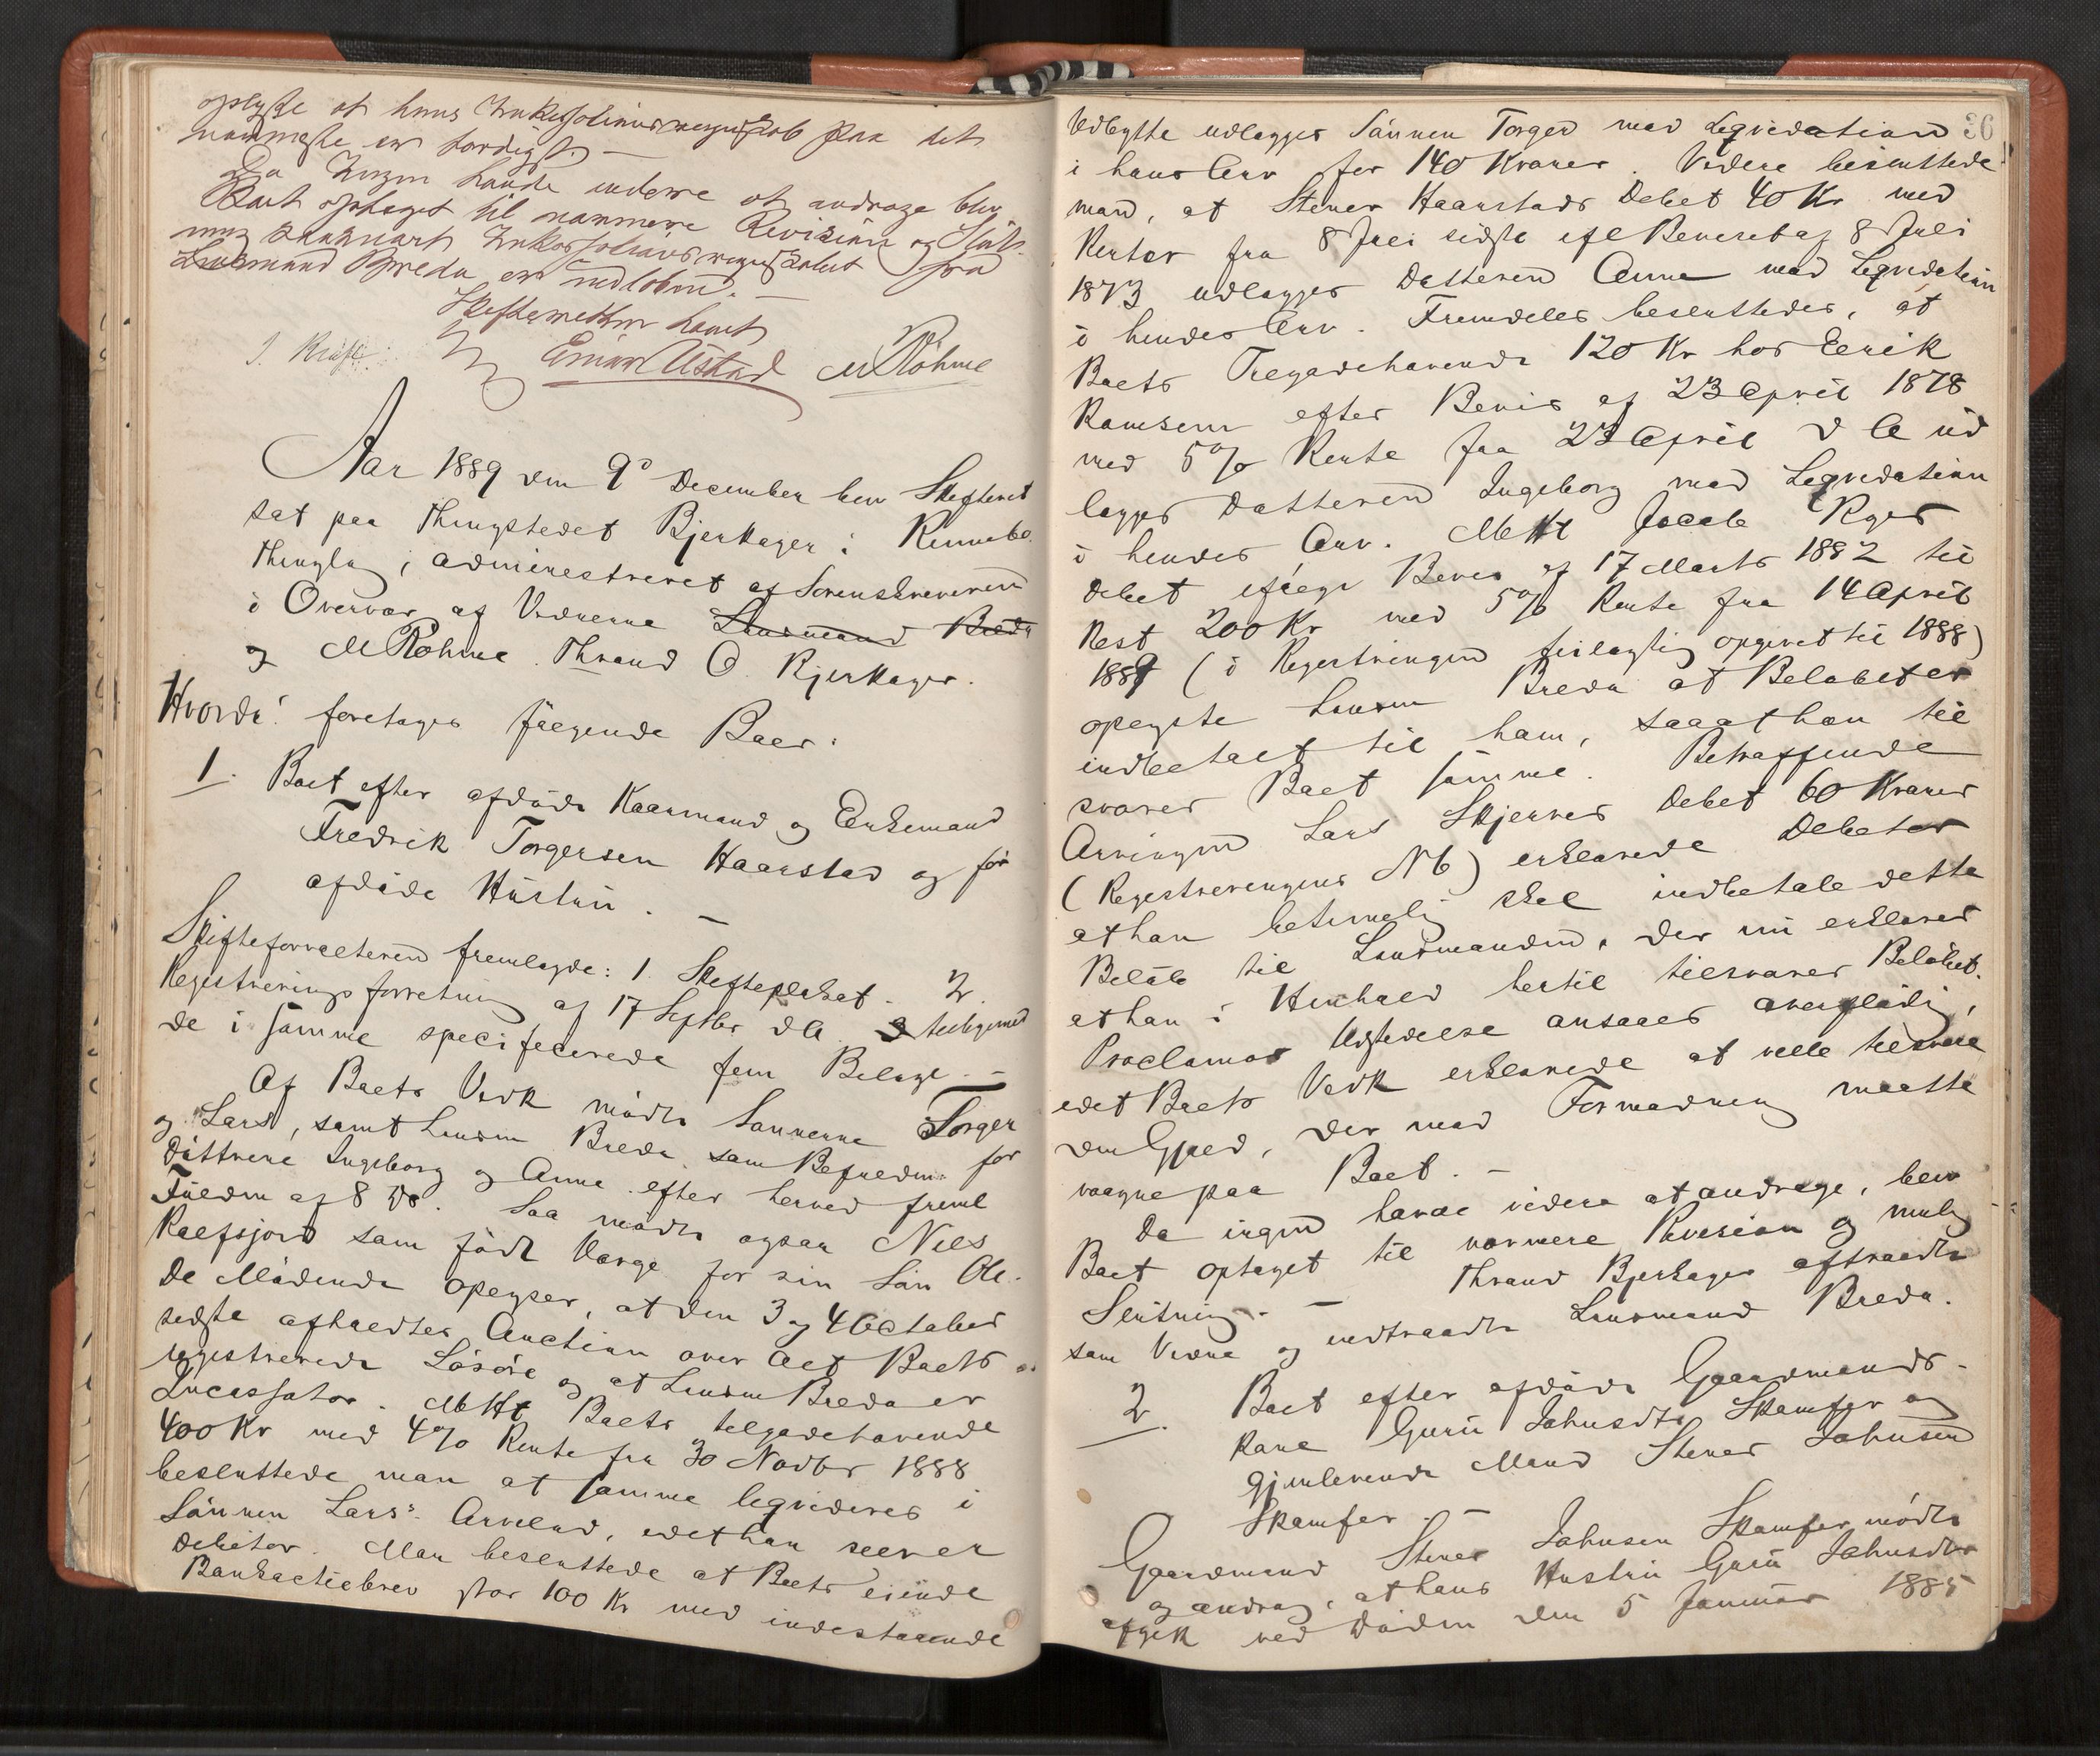 oplyste at hans Inkassationsregnskab paa det
nærmeste er færdigt. —
Da Ingen havde videre at andrage blev
Boet optaget til nærmere Revision og Slut-
ning saasnart Inkassationsregnskabet fra
Lensmand Breda er indløbet. —
Skifteretten hævet
J. Kraft Einar Ustad M Röhme
Aar 1889 den 9de December blev Skifteret
sat paa Thingstedet Bjerkager i Rennebo
Thinglag, administreret af Sorenskriveren
i Overvær af Vidnerne Lensmand Breda
og M Röhme. Thrand O. Bjerkager.
Hvorda! foretages følgende Boer:
1. Boet efter afdøde Kaarmand og Enkemand
Fredrik Torgersen Haarstad og før
afdøde Hustru. —
Skifteforvalteren fremlagde: 1 Skifteplakat. 2.
Registreringsforretning af 17 Septbr d A. 3 tilligemed
de i samme specificerede fem Bilage. —
Af Boets Vedk mødte Sønnerne Torger
og Lars, samt Lensm Breda som Befuldm. for
Døttrene Ingeborg og Anna efter herved freml
Fuldm af 8 ds. Saa mødte ogsaa Nils
Kalfsjord som født Værge for sin Søn Ole.
De Mødende oplyser, at den 3 og 4 October
sidste afholdtes Auction over alt Boets
registrerede Løsøre og at Lensm Breda er
Incassator. M Ht Boets tilgodehavende
400 Kr med 4% Rente fra 30 Novbr 1888
besluttede man at samme liqvideres i
Sønnen Lars's Arvelod, idet han selv er
Debitor. Man besluttede at Boets eiende
Bankactiebrev stor 100 Kr med indestaaende
36
Udbytte udlægges Sønnen Torger mod Liqvidation
i hans Arv for 140 Kroner. Videre besluttede
man, at Stener Haarstads Debet 40 Kr med
Renter fra 8 Juli sidste efl Bevis af 8 Juli
1873 udlægges Datteren Anne mod Liqvidation
i hendes Arv. Fremdeles besluttedes, at
Boets Tilgodehavende 120 Kr hos Eerik
Ramsem efter Bevis af 23 April 1878
med 5% Rente fra 23 April d A ud
lægges Datteren Ingeborg mod Liqvidation
i hendes Arv. M Ht Jacob Ryes
Debet ifølge Bevis af 17 Marts 1882 til
Rest 200 Kr med 5% Rente fra 14 April
1889 (i Registreringen feilagtig opgivet til 1888)
oplyste Lensm Breda at Beløbet er
indbetalt til ham, saaat han til
svarer Boet samme. Betræffende
Arvingen Lars Skjerves Debet 60 Kroner
(Registreringens N 6) erklærede Debitor
at han betimelig skal indbetale dette
Beløb til Lensmanden, der nu erklærer
at han i Henhold hertil tilsvarer Beløbet.
Proclamas Udstedelse ansaaes overflødig,
idet Boets Vedk erklærede at ville tilsvare
den Gjæld, der mod Formodning maatte
vaagne paa Boet. —
Da ingen havde videre at andrage, blev
Boet optaget til nærmere Revision og mulig
Slutning. — Thrand Bjerkager aftraadte
som Vidne og indtraadte Lensmand Breda.
2. Boet efter afdøde Gaardmands-
kone Guru Johnsdtr Skamfer og
gjenlevende Mand Stener Johnsen
Skamfer. —
Gaardmand Stener Johnsen Skamfer mødte
og androg, at hans Hustru Guru Johnsdtr
afgik ved Døden den 5 Januar 1885